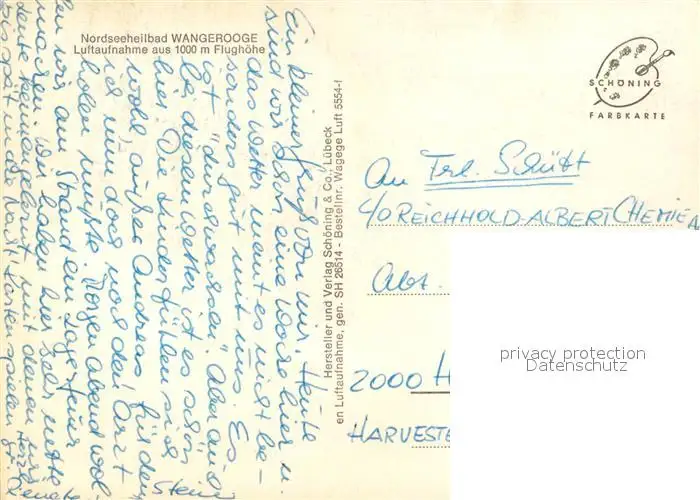 Nordseeheilbad WANGEROOGE
Luftaufnahme aus 1000 m Flughöhe
Ein kleiner Gruß von mir. Heute
sind wir schon eine Woche hier u.
das Wetter meint es nicht be-
sonders gut mit uns. Es
ist "durchwachsen". Aber auch
bei diesem Wetter ist es schön
hier. Die Kinder fühlen sich
wohl, außer Andreas für den
ich nun doch noch den Arzt
holen mußte. Morgen abend wol-
len wir am Strand ein Lagerfeuer
machen. Wir haben hier sehr nette
Leute kennengelernt, mit denen wir
bis spät in die Nacht Karten spielen.
Herzl.
Renate
Hersteller und Verlag Schöning & Co., Lübeck
en Luftaufnahme, gen. SH 26514 - Bestellnr. Wagege Luft 5554-f
SCHÖNING
FARBKARTE
An Frl. Schütt
c/o REICHHOLD-ALBERT CHEMIE A
Abt.
2000 H
HARVESTE
privacy protection
Datenschutz